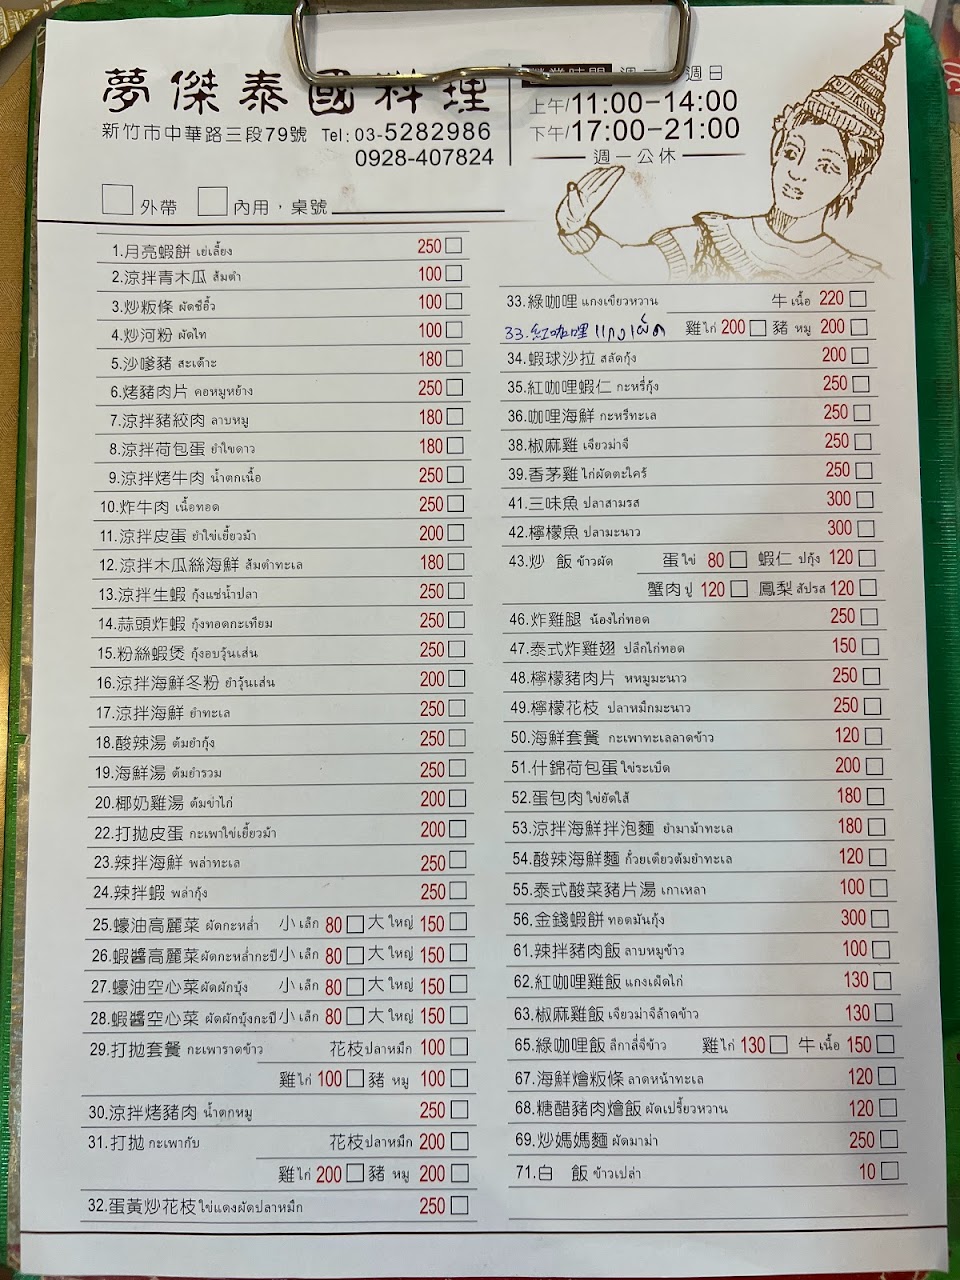 夢傑泰國料理
新竹市中華路三段79號 Tel: 03-5282986
0928-407824
上午/11:00-14:00
下午/17:00-21:00
週一公休
外帶 內用，桌號
1.月亮蝦餅 เย่เลี้ยง 250
2.涼拌青木瓜 ส้มตำ 100
3.炒粄條 ผัดซีอิ๊ว 100
4.炒河粉 ผัดไท 100
5.沙嗲豬 สะเต๊าะ 180
6.烤豬肉片 คอหมูหย้าง 250
7.涼拌豬絞肉 ลาบหมู 180
8.涼拌荷包蛋 ยำไขดาว 180
9.涼拌烤牛肉 น้ำตกเนื้อ 250
10.炸牛肉 เนื้อทอด 250
11.涼拌皮蛋 ยำไข่เยี้ยวม้า 200
12.涼拌木瓜絲海鮮 ส้มตำทะเล 180
13.涼拌生蝦 กุ้งแช่น้ำปลา 250
14.蒜頭炸蝦 กุ้งทอดกะเทียม 250
15.粉絲蝦煲 กุ้งอบวุ้นเส่น 250
16.涼拌海鮮冬粉 ยำวุ้นเส่น 200
17.涼拌海鮮 ยำทะเล 250
18.酸辣湯 ต้มยำกุ้ง 250
19.海鮮湯 ต้มยำรวม 250
20.椰奶雞湯 ต้มข่าไก่ 200
22.打拋皮蛋 กะเพาใข่เยี้ยวม้า 200
23.辣拌海鮮 พล่าทะเล 250
24.辣拌蝦 พล่ากุ้ง 250
25.蠔油高麗菜 ผัดกะหล่ำ 小 เล็ก 80 大 ใหญ่ 150
26.蝦醬高麗菜 ผัดกะหล่ำกะปี 小 เล็ก 80 大 ใหญ่ 150
27.蠔油空心菜 ผัดผักบุ้ง 小 เล็ก 80 大 ใหญ่ 150
28.蝦醬空心菜 ผัดผักบุ้งกะปี 小 เล็ก 80 大 ใหญ่ 150
29.打拋套餐 กะเพาราดข้าว 花枝 ปลาหมึก 100
雞 ไก่ 100 豬 หมู 100
30.涼拌烤豬肉 น้ำตกหมู 250
31.打拋 กะเพากับ 花枝 ปลาหมึก 200
雞 ไก่ 200 豬 หมู 200
32.蛋黃炒花枝 ใข่แดงผัดปลาหมึก 250
33.綠咖哩 แกงเขียวหวาน 牛 เนื้อ 220
33.紅咖哩 แกงเผ็ด 雞 ไก่ 200 豬 หมู 200
34.蝦球沙拉 สลัดกุ้ง 200
35.紅咖哩蝦仁 กะหรี่กุ้ง 250
36.咖哩海鮮 กะหรี่ทะเล 250
38.椒麻雞 เจียวม่าจี 250
39.香茅雞 ไก่ผัดตะใคร้ 250
41.三味魚 ปลาสามรส 300
42.檸檬魚 ปลามะนาว 300
43.炒 飯 ข้าวผัด 蛋 ใข่ 80 蝦仁 ปกุ้ง 120
蟹肉 ปู 120 鳳梨 สัปรส 120
46.炸雞腿 น้องไก่ทอด 250
47.泰式炸雞翅 ปลีกไก่ทอด 150
48.檸檬豬肉片 หหมูมะนาว 250
49.檸檬花枝 ปลาหมึกมะนาว 250
50.海鮮套餐 กะเพาทะเลลาดข้าว 120
51.什錦荷包蛋 ใข่ระเบิด 200
52.蛋包肉 ใข่ยัดใส้ 180
53.涼拌海鮮拌泡麵 ยำมาม้าทะเล 180
54.酸辣海鮮麵 ก๋วยเตียวต้มยำทะเล 120
55.泰式酸菜豬片湯 เกาเหลา 100
56.金錢蝦餅 ทอดมันกุ้ง 300
61.辣拌豬肉飯 ลาบหมูข้าว 100
62.紅咖哩雞飯 แกงเผ็ดไก่ 130
63.椒麻雞飯 เจียวม่าจีลัาดข้าว 130
65.綠咖哩飯 ลึกาลี่จีข้าว 雞 ไก่ 130 牛 เนื้อ 150
67.海鮮燴粄條 ลาดหน้าทะเล 120
68.糖醋豬肉燴飯 ผัดเปรี้ยวหวาน 120
69.炒媽媽麵 ผัดมาม่า 250
71.白 飯 ข้าวเปล่า 10